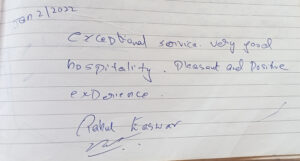 Jan 2/2022
Exceptional service. very good
hospitality. Pleasant and Positive
experience.
Rahul Easwar